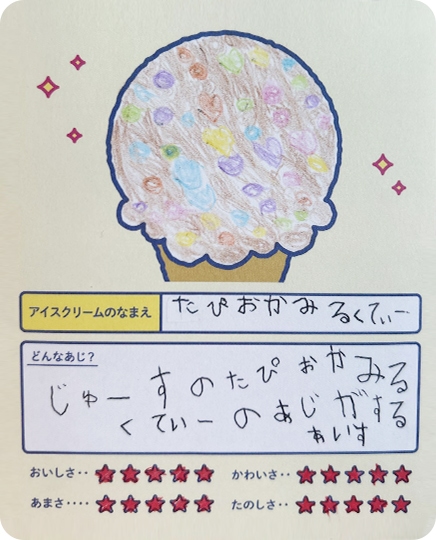 アイスクリームのなまえ
たぴおかみるくてぃー
どんなあじ?
じゅーすのたぴおかみる
くてぃーのあじがする
あいす
おいしさ‥ ★★★★★
かわいさ‥ ★★★★★
あまさ‥‥ ★★★★★
たのしさ‥ ★★★★★